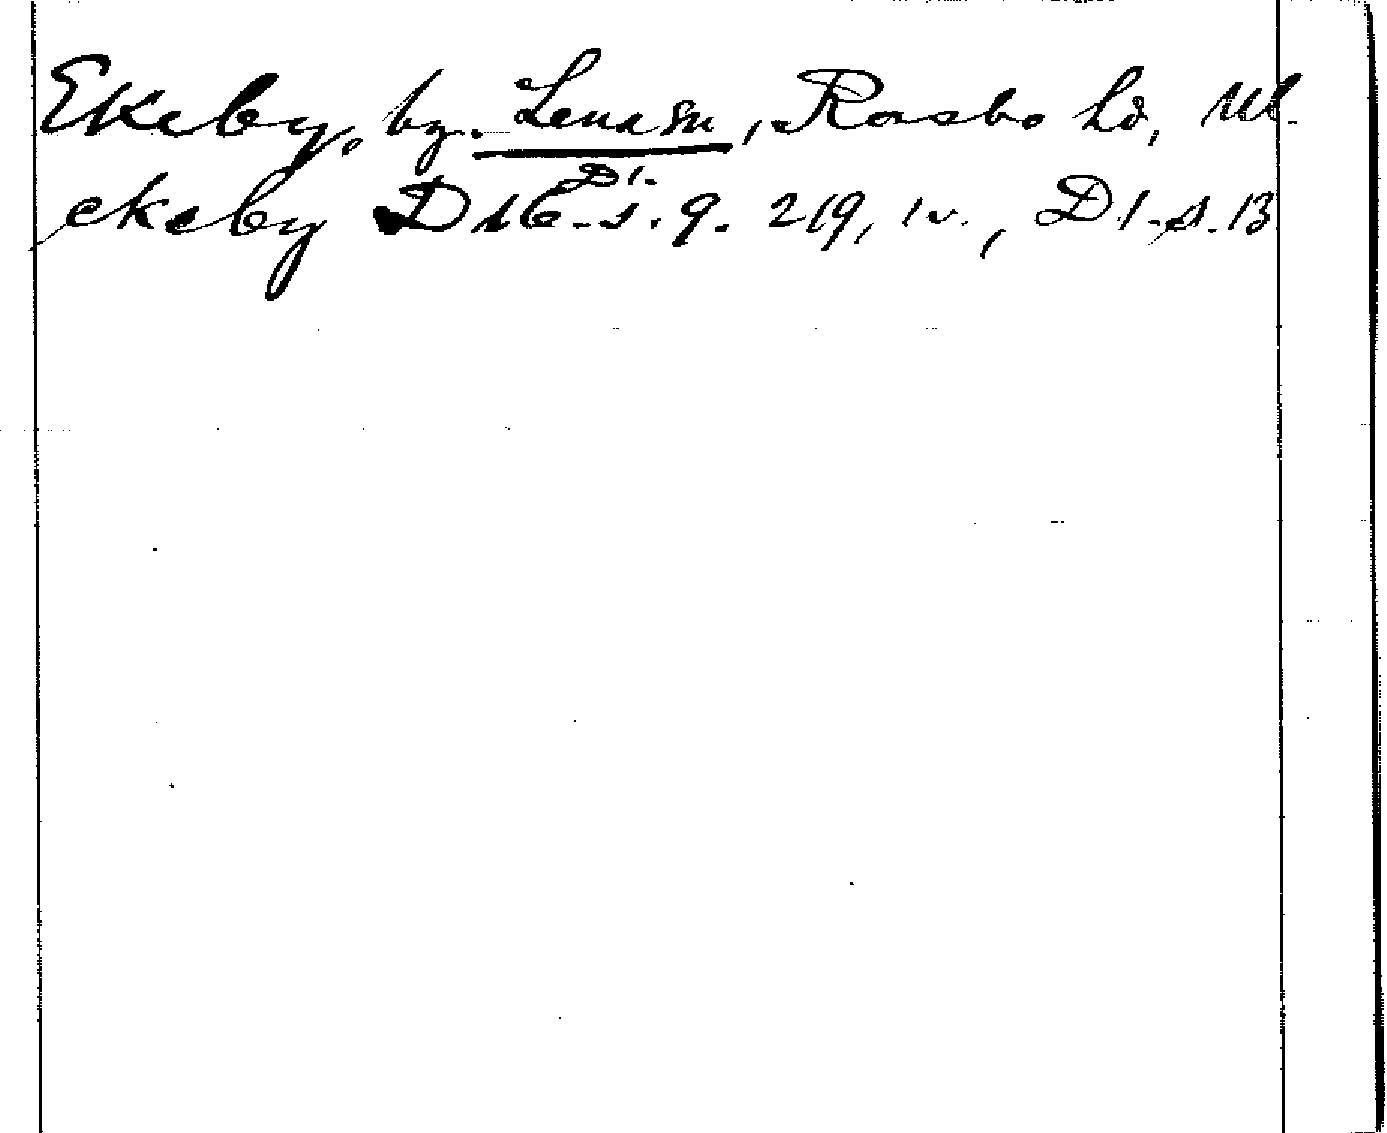 Ekeby, by. Lena sn, Rasbo hd, Upl.
D1.
ekeby D 16-s. 9. 219, 1v., D1-s. 13